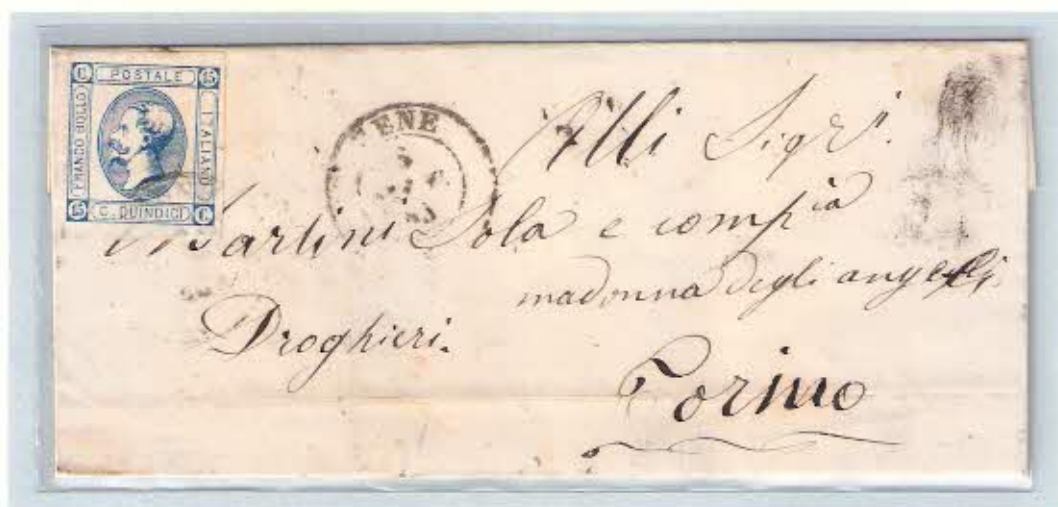 C POSTALE 15
FRANCO BOLLO
ITALIANO
15 C. QUINDICI C
ENE
Alli Sigri.
Martini Sola e compia
madonna degli angeli
Droghieri.
Torino